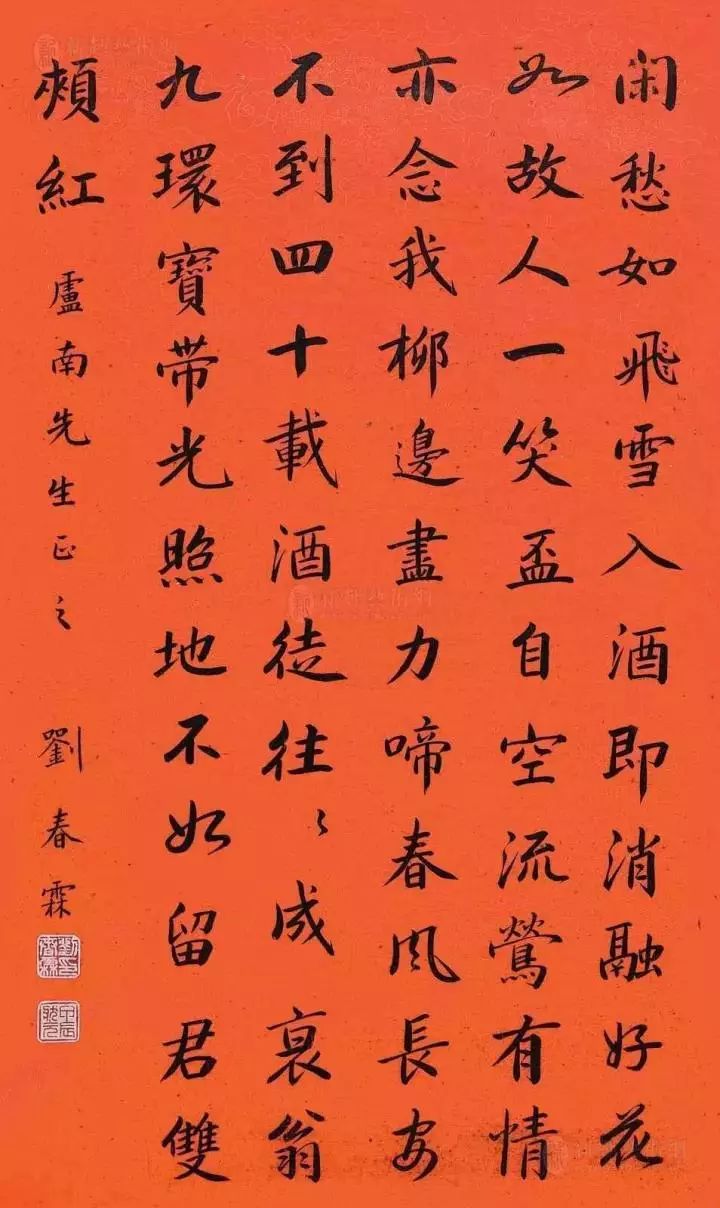 闲愁如飛雪入酒即消融好花
如故人一笑盃自空流鶯有情
亦念我柳邊盡力啼春風長安
不到四十載酒徒往〻成衰翁
九環寶帶光照地不如留君雙
頰紅
盧南先生正之
劉春霖